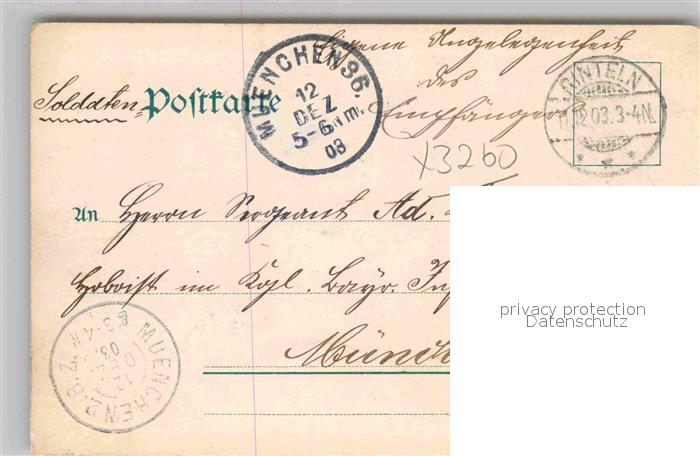 Eigene Angelegenheit
des
Empfängers
Soldaten Postkarte
MUENCHEN 36.
12
DEZ
5-6 N m.
03
RINTELN
12 03. 3-4N.
X3260
An Herrn Sergeant Ad.
Hoboist im Kgl. Bayr. Inf
Münch
MUENCHEN 2.B.Z.
12
DEZ
03.
3-4 N
privacy protection
Datenschutz